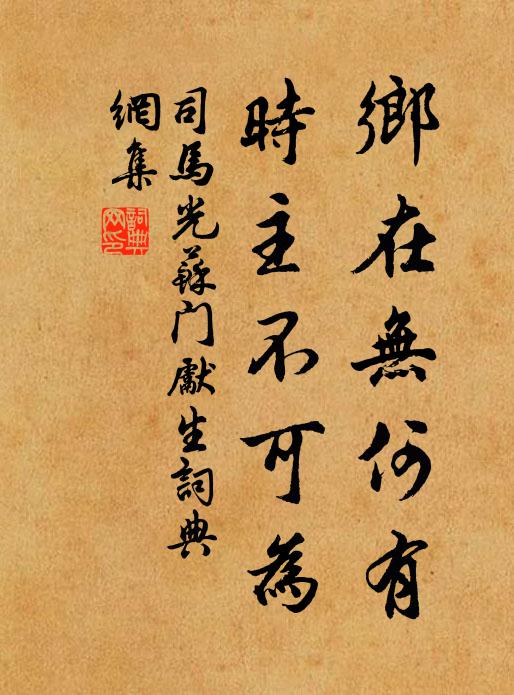 鄉在無何有
時主不可為
司馬光蘇門獻生詞典
網集
詞典網印